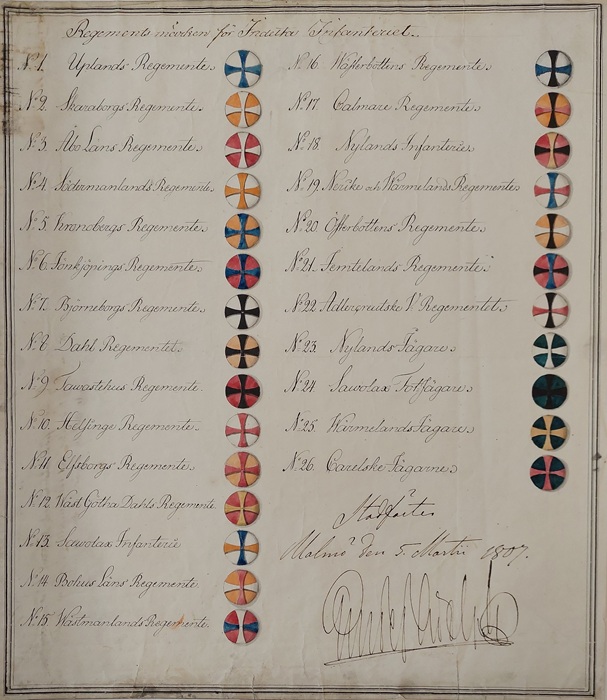 Regements märken för Indelta Infanteriet.
No 1. Uplands Regemente
No 2. Skaraborgs Regemente
No 3. Åbo Läns Regemente
No 4. Södermanlands Regemente
No 5. Kronobergs Regemente
No 6. Jönkjöpings Regemente
No 7. Björneborgs Regemente
No 8 Dahl Regementet
No 9 Tawastehus Regemente.
No 10. Helsinge Regemente
No 11 Elfsborgs Regemente
No 12 Wäst Götha Dahls Regemente
No 13. Sawolax Infanterie
No 14 Bohus Läns Regemente
No 15 Wästmanlands Regemente
No 16. Wästerbottens Regemente
No 17 Calmare Regemente
No 18 Nylands Infanterie
No 19 Nerike och Wärmelands Regemente
No 20. Österbottens Regemente
No 21. Jemtelands Regemente
No 22 Adlercreutzske V. Regementet
No 23. Nylands Jägare
No 24. Sawolax Fotjägare
No 25. Wärmelands Jägare
No 26. Carelske Jägarne
Stadfäster
Malmö den 5. Martii 1807.
Gustaf Adolph